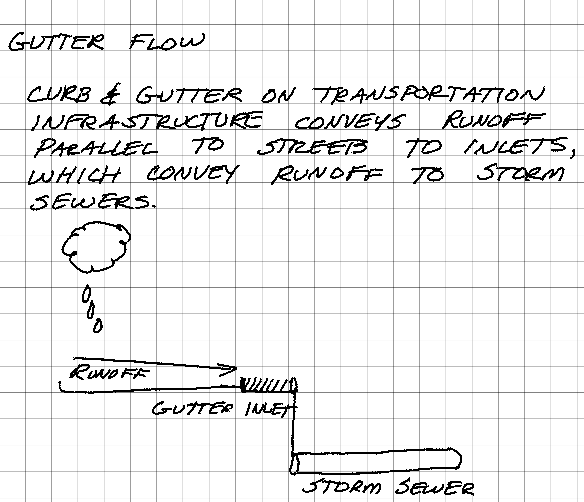 GUTTER FLOW
CURB & GUTTER ON TRANSPORTATION
INFRASTRUCTURE CONVEYS RUNOFF
PARALLEL TO STREETS TO INLETS,
WHICH CONVEY RUNOFF TO STORM
SEWERS.
RUNOFF
GUTTER INLET
STORM SEWER